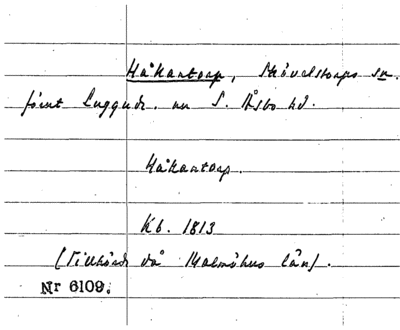 Håkantorp, Skåvelstorps sn.
förut Luggude, nu S. Åsbo hd.
Håkantorp.
Kb. 1813
(Tillhörde då Malmöhus län).
Nr 6109.